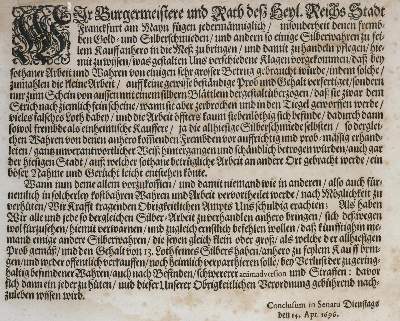 WIr Burgermeistere und Rath deß Heyl. Reichs Stadt
Franckfurt am Mayn fügen jedermänniglich / insonderheit denen frembden
Gold- und Silberschmieden / und andern so einige Silberwahren zu feilem
Kauff anhero in die Meß zu bringen / und damit zu handeln pflegen / hiemit
zu wissen / was gestalten Uns verschiedene Klagen vorgekommen / daß bey
sothaner Arbeit und Wahren von einigen sehr grosser Betrug gebraucht würde / indem solche /
zumahlen die kleine Arbeit / auff keine gewisse beständige Prob und Gehalt verfertiget / sondern
nur zum Schein von aussen mit einem silbern Blättlein dergestalt überzogen / daß sie zwar dem
Strich nach ziemlich fein scheine / wann sie aber zerbrochen und in den Tiegel geworffen werde /
vieles falsches Loth habey / und die Arbeit öffters kaum siebenlöthig sich befinde / dadurch dann
sowol frembde als einheimische Kauffere / ja die allhiesige Silberschmiede selbsten / so dergleichen
Wahren von denen anhero kommenden Fremden vor auffrichtig und probmässig erhandelten /
gantz unverantwortlicher Weiß hintergangen und schändlich betrogen würden / auch gar
der hiesigen Stadt / auß welcher sothane betrügliche Arbeit an andere Ort gebracht werde / ein
böser Nahme und Gerücht leicht entstehen könte.
Wann nun deme allem vorzukommen / und damit niemand wie in anderen / also auch fürnemlich
in solcherley kostbahren Wahren und Arbeit vervortheilet werde / nach Möglichkeit zu
verhüten / Wir Krafft tragenden Obrigkeitlichen Ampts Uns schuldig erachten: Als haben
Wir alle und jede so dergleichen Silber-Arbeit zu verhandlen anhero bringen / sich deßwegen
wol fürzusehen / hiemit verwarnen / und zugleich ernstlich befehlen wollen / daß künfftighin niemand
einige andere Silberwahren / die seyen gleich klein oder groß / als welche der allhiesigen
Prob gemäß / und den Gehalt von 13. Loth feines Silbers haben / anhero zu feylem Kauff bringen /
und weder offentlich verkauffen / noch heimlich verparthieren solle / bey Verlust der zu geringhaltig
befundener Wahren / auch nach Befinden / schwererer animadversion und Straffen: davor
sich dann ein jeder zu hüten / und dieser Unserer Obrigkeitlichen Verordnung gebührend nachzuleben
wissen wird.
Conclusum in Senatu Dienstags
den 14. Apr. 1696.